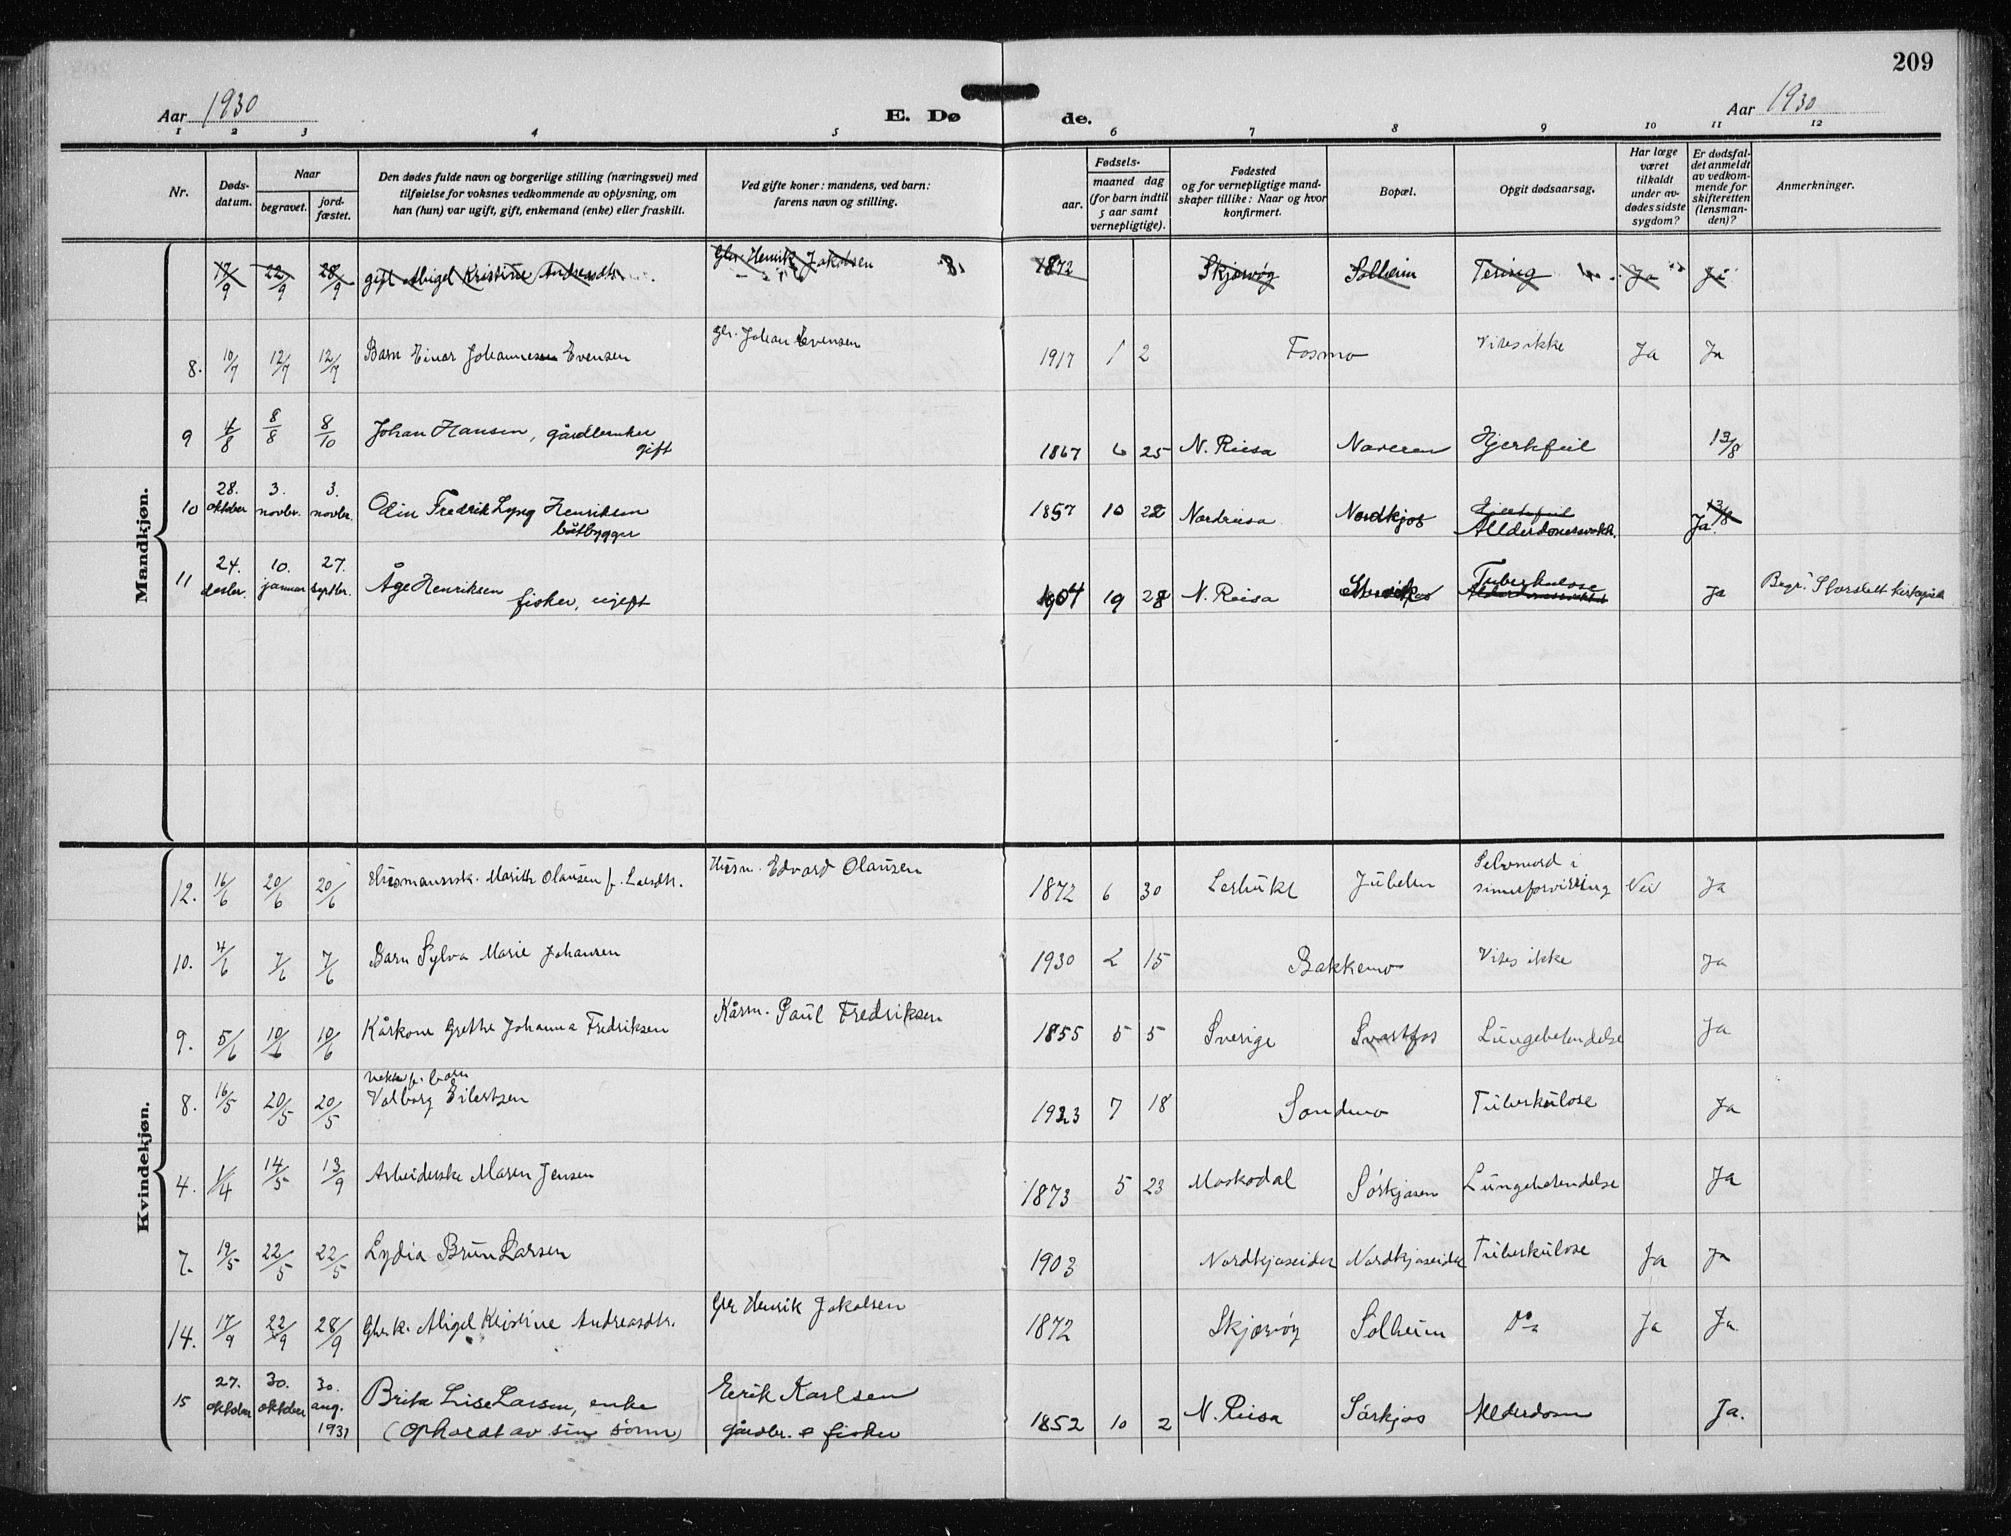 209
Aar 1930
E. Dø
de.
Aar 1930
1 2 3 4 5 6 7 8 9 10 11 12
Nr.
Døds-
datum.
Naar
begravet.
jord-
fæstet.
Den dødes fulde navn og borgerlige stilling (næringsvei) med
tilføielse for voksnes vedkommende av oplysning, om
han (hun) var ugift, gift, enkemand (enke) eller fraskilt.
Ved gifte koner: mandens, ved barn:
farens navn og stilling.
Fødsels-
aar.
maaned dag
(for barn indtil
5 aar samt
vernepligtige).
Fødested
og for vernepligtige mand-
skaper tillike: Naar og hvor
konfirmert.
Bopæl.
Opgit dødsaarsag.
Har læge
været
tilkaldt
under av-
dødes sidste
sygdom?
Er dødsfal-
det anmeldt
av vedkom-
mende for
skifteretten
(lensman-
den)?
Anmerkninger.
Mandkjøn.
17/9 22/9 28/9 gift Abigel Kristine Andreasdtr. Gbr. Henrik Jakobsen 1872 Skjærvøy Solheim Tæring Ja Ja
8. 10/7 12/7 12/7 Barn Einar Johannesen Evensen gbr. Johan Evensen 1917 1 2 Fosmo Vites ikke Ja Ja
9 4/8 8/8 8/10 Johan Hansen, gårdbruker
gift 1867 6 25 N. Reisa Naveren Hjertefeil 13/8
10 28. oktober 3. novbr. 3. novbr. Odin Fredrik Lyng Henriksen
båtbygger 1857 10 22 Nordreisa Nordkjos Hjertefeil 13/8
Ja.
11 24. desbr. 10. januar 27. septbr. Åge Henriksen
fisker, ugift 1904 19 28 N. Reisa Tuberkulose Ja
Kvindekjøn.
12. 16/6 20/6 20/6 Husmannsk. Marith Olausen f. Larsdtr. Husm. Edvard Olausen 1872 6 30 Jubelen Selvmord i
sinnsforvirring Nei Ja
10. 4/6 7/6 7/6 Barn Sylva Marie Johansen 1930 2 15 Bakkemo Vites ikke Ja
9. 5/6 10/6 10/6 Kårkone Grethe Johanna Fredriksen Kårm. Paul Fredriksen 1855 5 5 Sverige Svartfos Lungebetendelse Ja
8. 16/5 20/5 20/5 barn
Valborg Eilertsen 1923 7 18 Sandmo Tuberkulose Ja
4. 1/4 14/5 13/9 Arbeiderske Maren Jensen 1873 5 23 Maskodal Sörkjosen Lungebetendelse Ja
7. 19/5 22/5 22/5 Lydia Brun Larsen 1903 Nordkjoseidet Nordkjoseidet Tuberkulose Ja Ja
14. 17/9 22/9 28/9 Gbrk. Abigel Kristine Andreasdtr. Gbr Henrik Jakobsen 1872 Skjærvøy Solheim Do Ja Ja
15 27. oktober 30. oktober 30. aug. 1931 Brita Lise Larsen, enke
(Opholdt av sin sönn) Eerik Karlsen
gårdbr. o fisker 1852 10 2 N. Reisa Sörkjos Allderdom Ja.